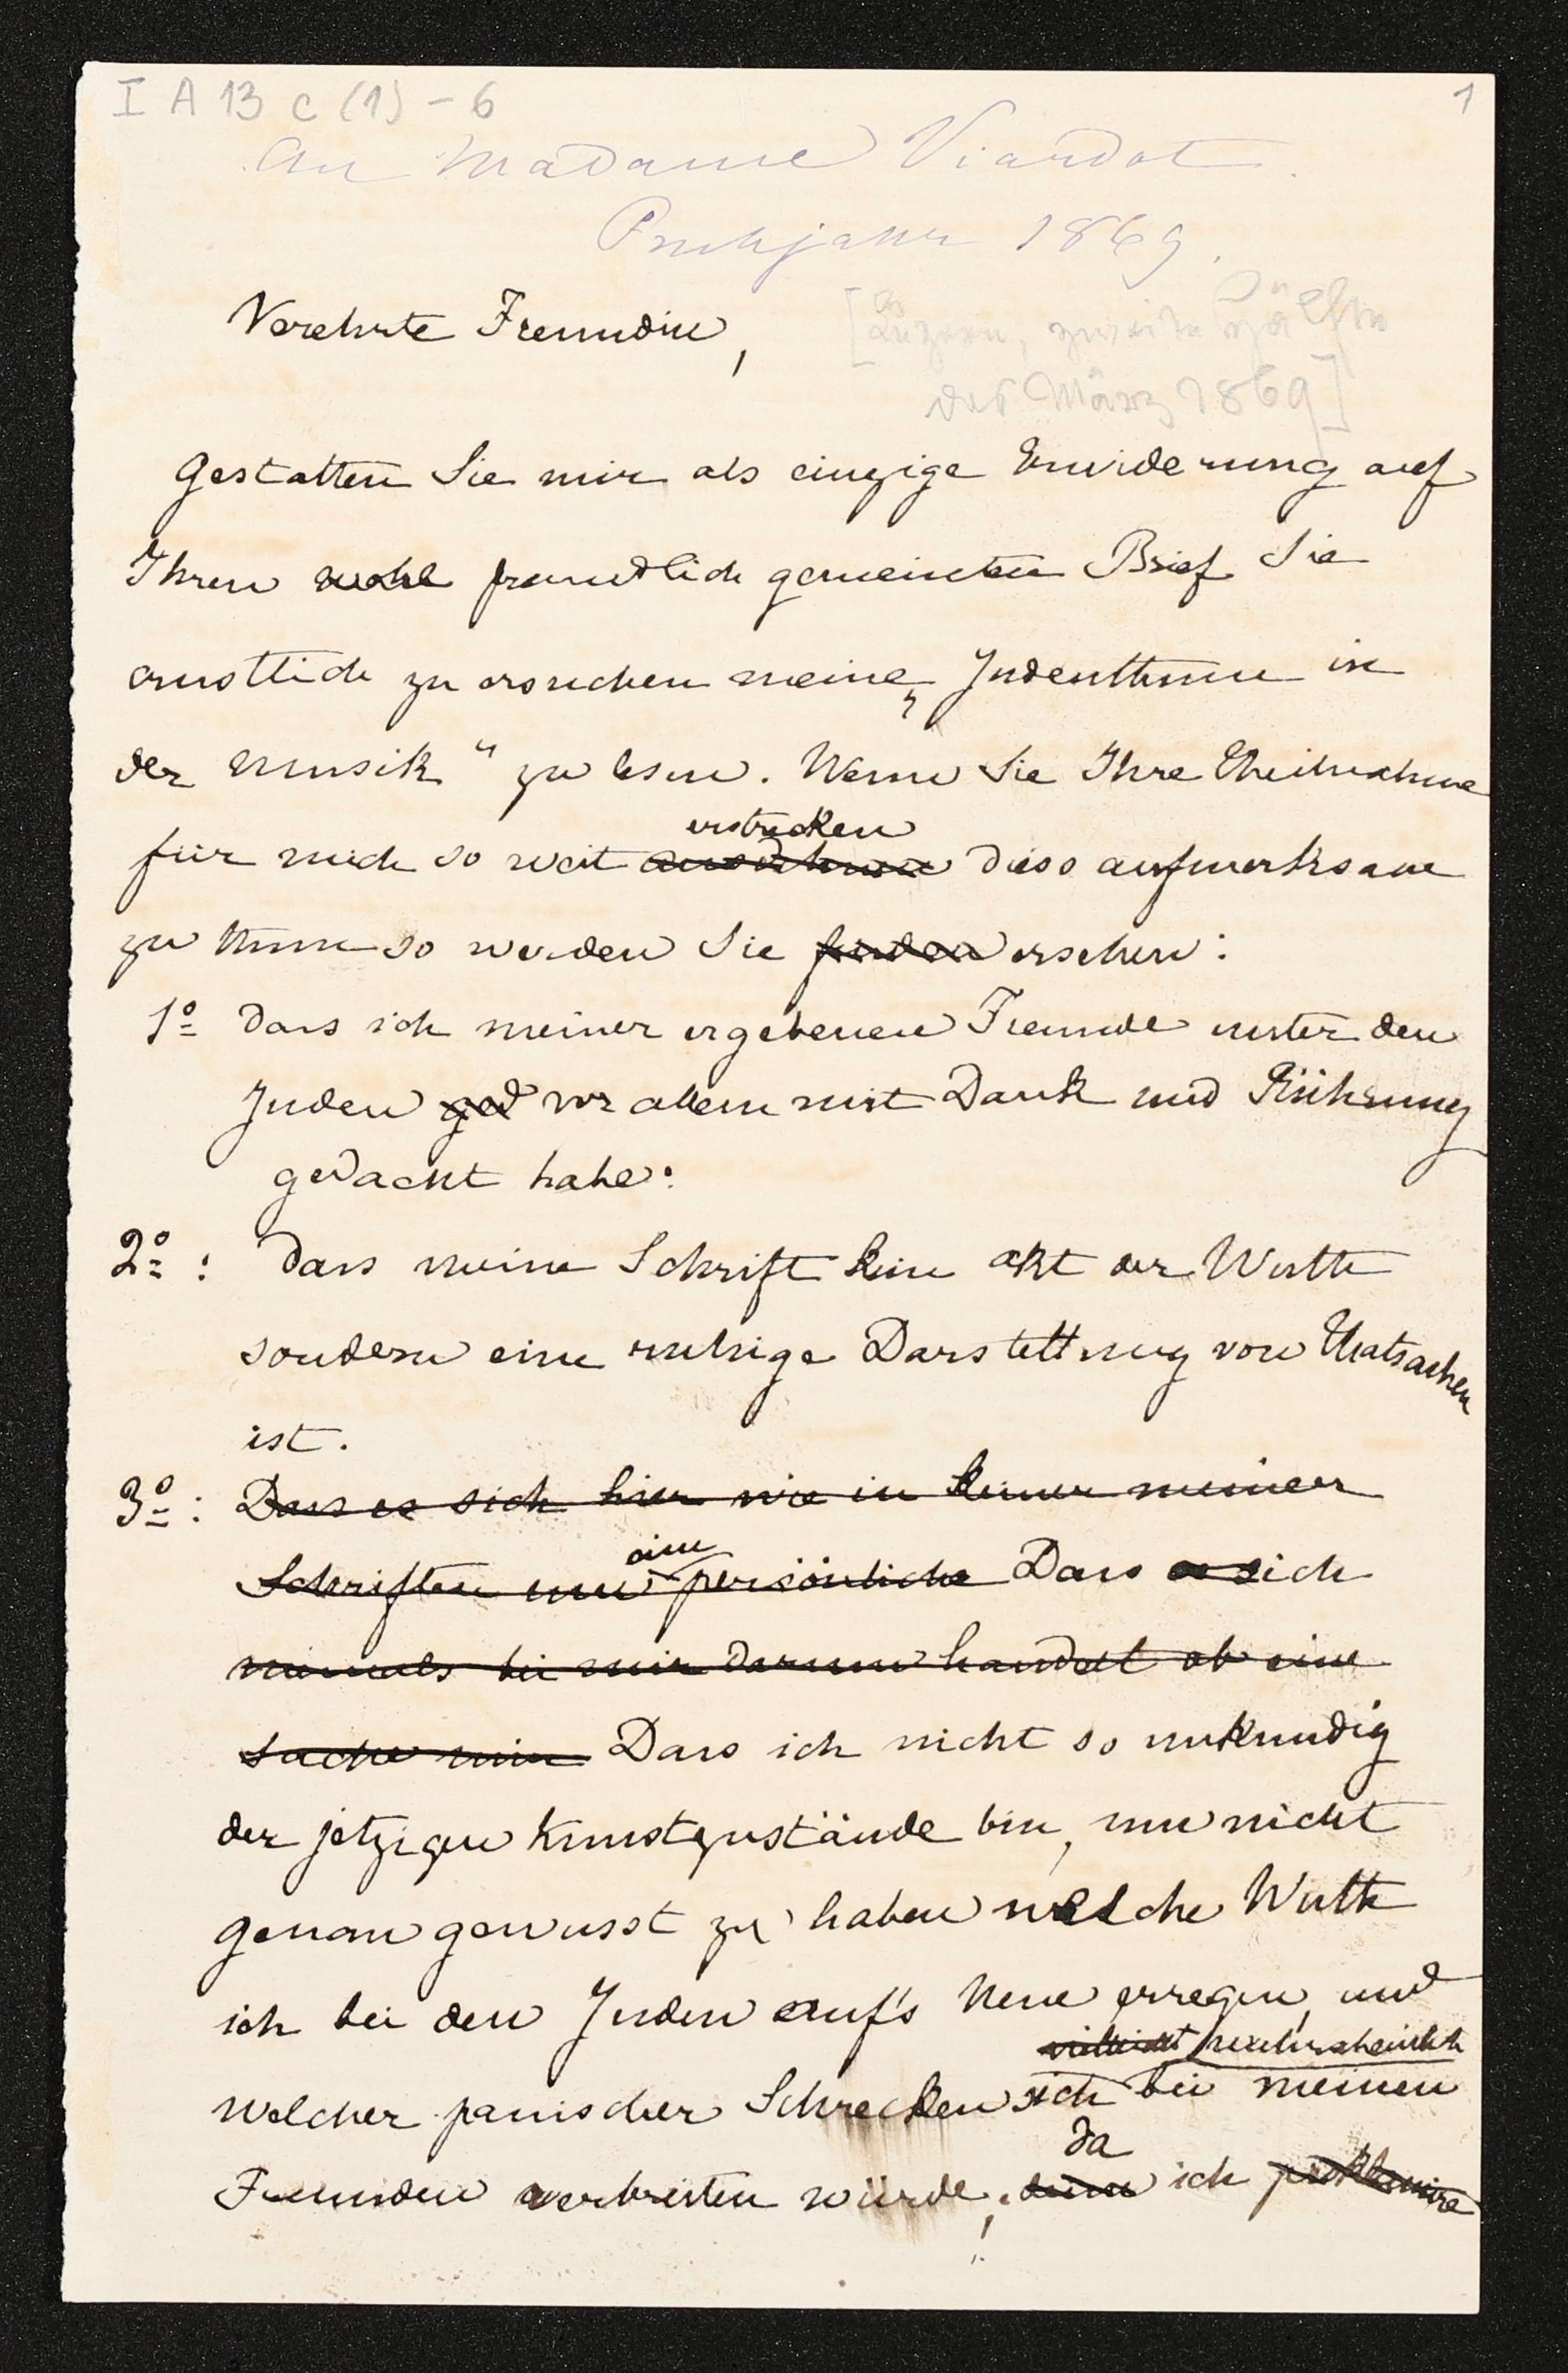 I A 13 c (1) – 6
1
An Madame Viardot.
Frühjahr 1869.
Verehrte Freundin,
[Luzern, zweite Hälfte
des März 1869]
Gestatten Sie mir als einzige Erwiderung auf
Ihren wohl freundlich gemeinten Brief Sie
ernstlich zu ersuchen meine „Judenthum in
der Musik“ zu lesen. Wenn Sie Ihre Theilnahme
erstrecken
für mich so weit ausdehnen diess aufmerksam
zu thun so werden Sie finden ersehen:
1º dass ich meiner ergebenen Freunde unter den
Juden ged vor allem mit Dank und Rührung
gedacht habe:
2º: dass meine Schrift kein Akt der Wuth
sondern eine ruhige Darstellung von Thatsachen
ist.
3º: Dass es sich hier wie in keiner meiner
eine
Schriften um persönliche Dass es sich
niemals bei mir darum handelt ob eine
Sache mir Dass ich nicht so unkundig
der jetzigen Kunstzustände bin, um nicht
genau gewusst zu haben welche Wuth
ich bei den Juden auf's Neue erregen, und
vielleicht wahrscheinlich
welcher panischer Schrecken sich bei meinen
da
Freunden verbreiten würde; denn ich proklamire